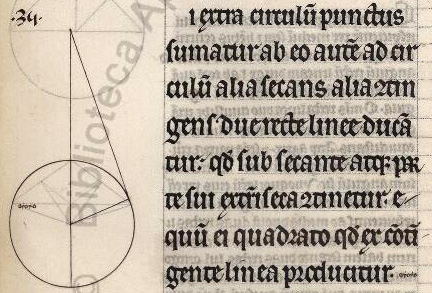 .34.
i extra circulū punctus
sumatur ab eo autē ad cir
culū alia secans alia ɔtin
gens due recte linee ducā
tur: qđ sub secante atqꝫ par
te sui extrīseca ɔtinetur. e
quū ei quadrato qđ ex cōti
gente linea producitur.
Biblioteca Ap
©